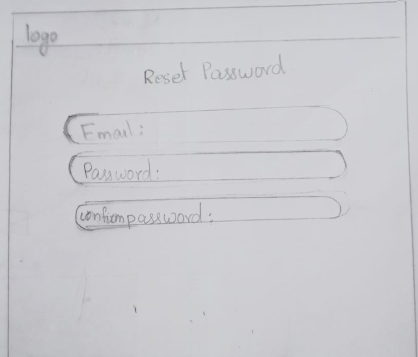 logo
Reset Password
Email:
Password:
Confirm password: